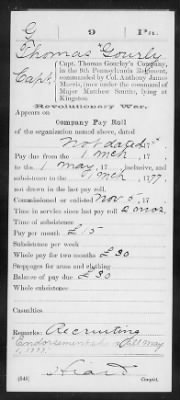 G 9 Pa.
Thomas Gourly
Capt., Capt. Thomas Gourley's Company,
in the 9th Pennsylvania Regiment,
commanded by Col. Anthony James
Morris, (now under the command of
Major Matthew Smith), lying at
Kingston.
Revolutionary War.
Appears on
Company Pay Roll
of the organization named above, dated
not dated, 17
Pay due from the 1 Mch, 17
to the 1 May, 17 inclusive, and
subsistence in the 1 Mch, 1777,
not drawn in the last pay roll.
Commissioned or enlisted Nov 5, 17
Time in service since last pay roll 2 mos.
Time of service
Pay per month £15
Subsistence per week
Whole pay for two months £30
Stoppages for arms and clothing
Balance of pay due £30
Whole subsistence
Casualties
Remarks: Recruiting
Endorsement till May
1, 1777.
(543) Copyist.